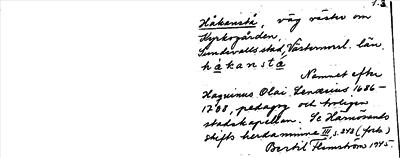 1.3
Håkanstå, väg väster om
Kyrkogården,
Sundsvalls stad, Västernorrl. län.
håkanstå
Namnet efter
Haquinus Olai Lenæus 1686-
1708, pedagog och troligen
stadskapellan. Se Härnösands
stifts herdaminne III, s. 248 (forts)
Bertil Flemström 1945.